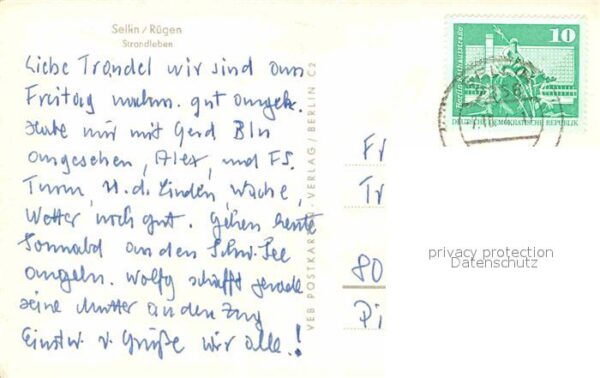 Sellin / Rügen
Strandleben
Liebe Trondel wir sind am
Freitag nachm. gut angek.
Heute mir mit Gerd Bln
angesehen, Alex, und FS.
Turm, U. d. Linden, Wache,
Wetter noch gut. Gehen heute
Sonnabd an den Schw. See
angeln. Wolfg schafft gerade
seine Mutter an den Zug
Einstw. v. Grüße wir alle!
VEB POSTKARTEN-VERLAG / BERLIN C2
10
DEUTSCHE DEMOKRATISCHE REPUBLIK
Fr
Tr
80
Pi
privacy protection
Datenschutz